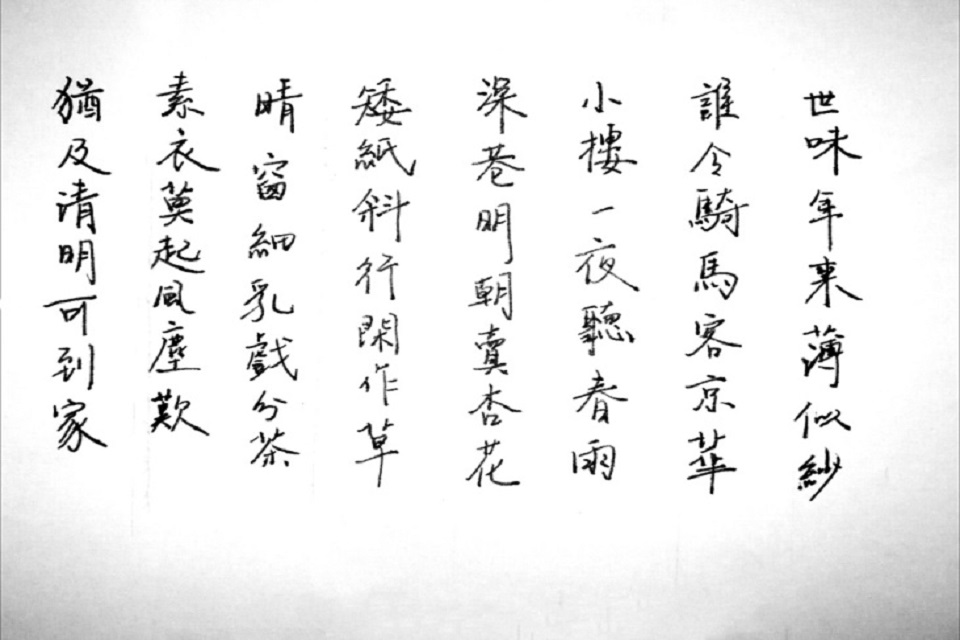 世味年来薄似紗
誰令騎馬客京華
小樓一夜聽春雨
深巷明朝賣杏花
矮紙斜行閑作草
晴窗細乳戲分茶
素衣莫起風塵歎
猶及清明可到家